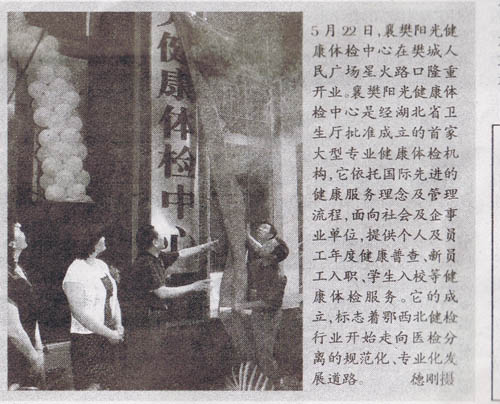 健康体检中心
5月22日，襄樊阳光健
康体检中心在樊城人
民广场星火路口隆重
开业。襄樊阳光健康体
检中心是经湖北省卫
生厅批准成立的首家
大型专业健康体检机
构，它依托国际先进的
健康服务理念及管理
流程，面向社会及企事
业单位，提供个人及员
工年度健康普查、新员
工入职、学生入校等健
康体检服务。它的成
立，标志着鄂西北健检
行业开始走向医检分
离的规范化、专业化发
展道路。 德刚摄